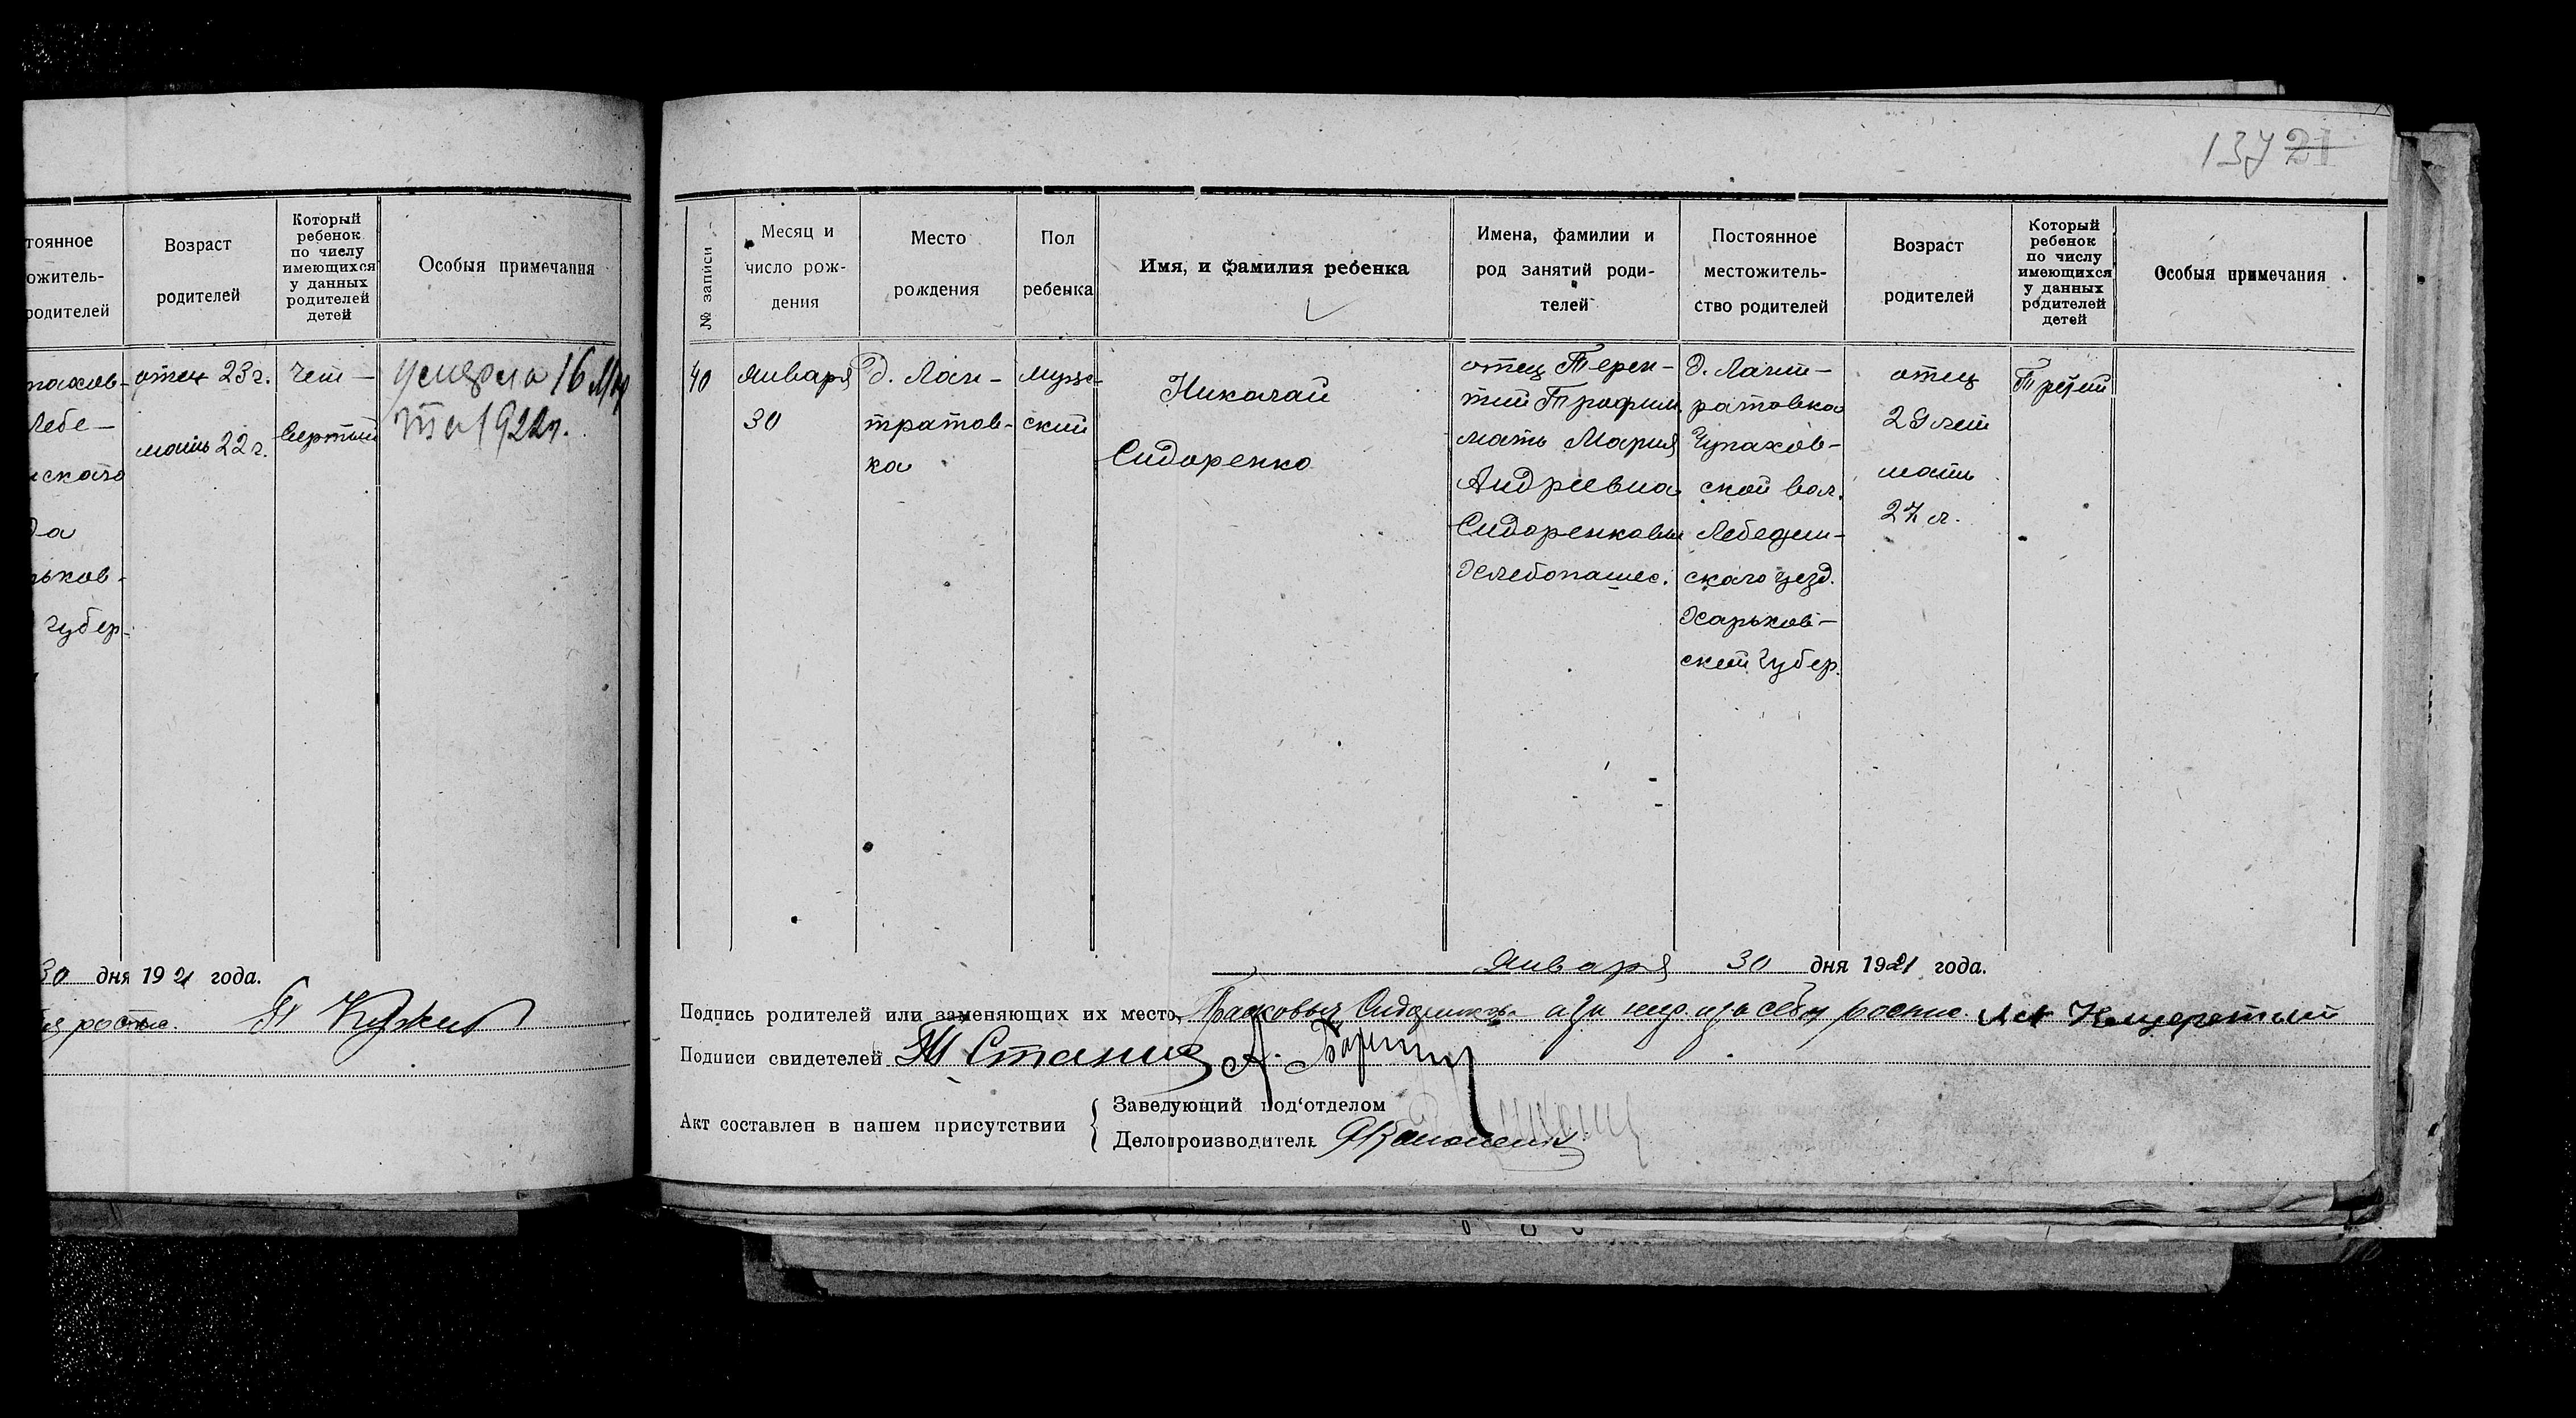 137 21
тоянное
ожитель-
родителей
Возраст
родителей
Который
ребенок
по числу
имеющихся
у данных
родителей
детей
Особыя примечания
пахов-
Лебе-
нского
да
рьков-
губер-
отец 23 г.
мать 22 г.
Чет-
вертый
умерла 16 Мар
та 1922 г.
30 дня 1921 года.
№ записи
Месяц и
число рож-
дения
Место
рождения
Пол
ребенка
Имя, и фамилия ребенка
Имена, фамилии и
род занятий роди-
телей
Постоянное
местожитель-
ство родителей
Возраст
родителей
Который
ребенок
по числу
имеющихся
у данных
родителей
детей
Особыя примечания
40
Января
30
д. Лан-
тратов-
ка
мужс-
кий
Николай
Сидоренко
отец Терен-
тий Трофим.
мать Мария
Андреевна
Сидоренковы
Хлебопашес.
д. Лант-
ратовка
Чупахов-
ской вол.
Лебедин-
скаго уезд.
Харьков-
ской губер.
отец
29 лет
мать
27 л.
Третий
Января 30 дня 1921 года.
Подпись родителей или заменяющих их место
Подписи свидетелей
Акт составлен в нашем присутствии
Заведующий под'отделом
Делопроизводитель